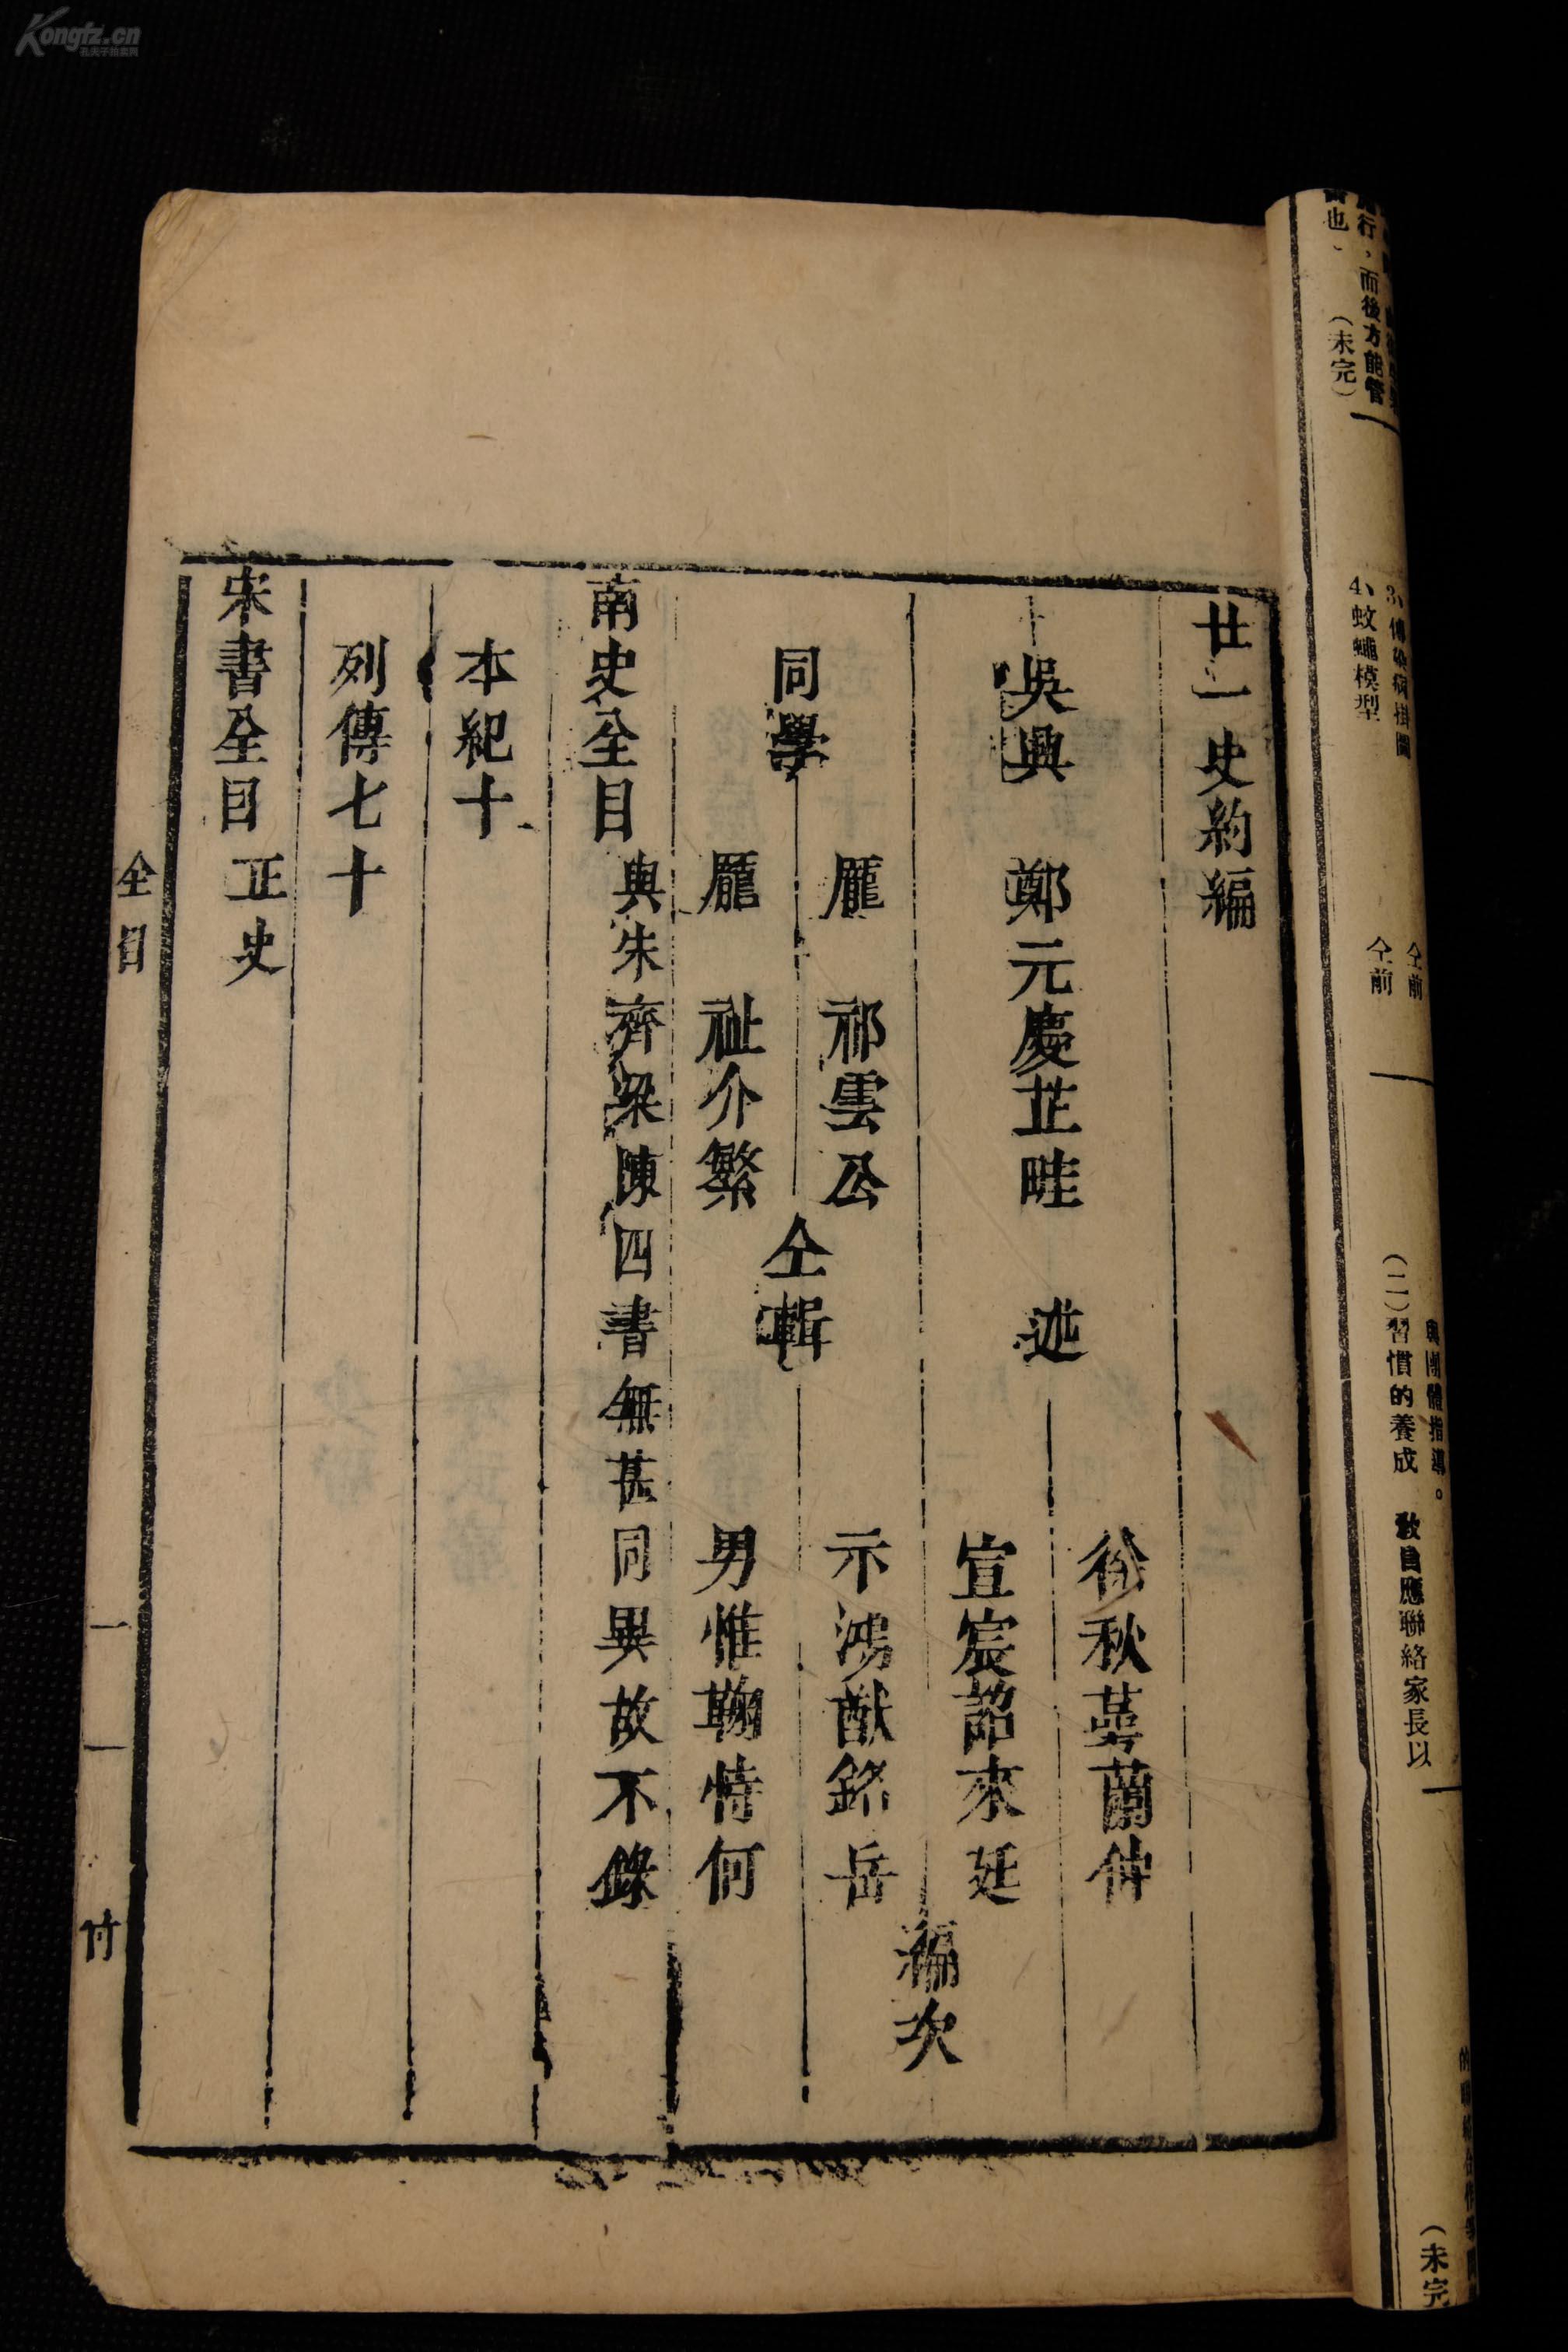 廿一史約編
吳興　鄭元慶芷畦　述
徐秋蕚蘭仲
宣宸詔來廷
編次
同學
龎　祁雲公
龎　祉介繁
仝輯
示鴻猷銘岳
男惟鞠恃何
南史全目
與朱齊梁陳四書無甚同異故不錄
本紀十
列傳七十
宋書全目　正史
全目
一
竹
行，而後方能管
也、　（未完）
4、蚊蠅模型
仝前
仝前
（二）習慣的養成
教員應聯絡家長以
與團體指導。
（未完
Kongfz.cn